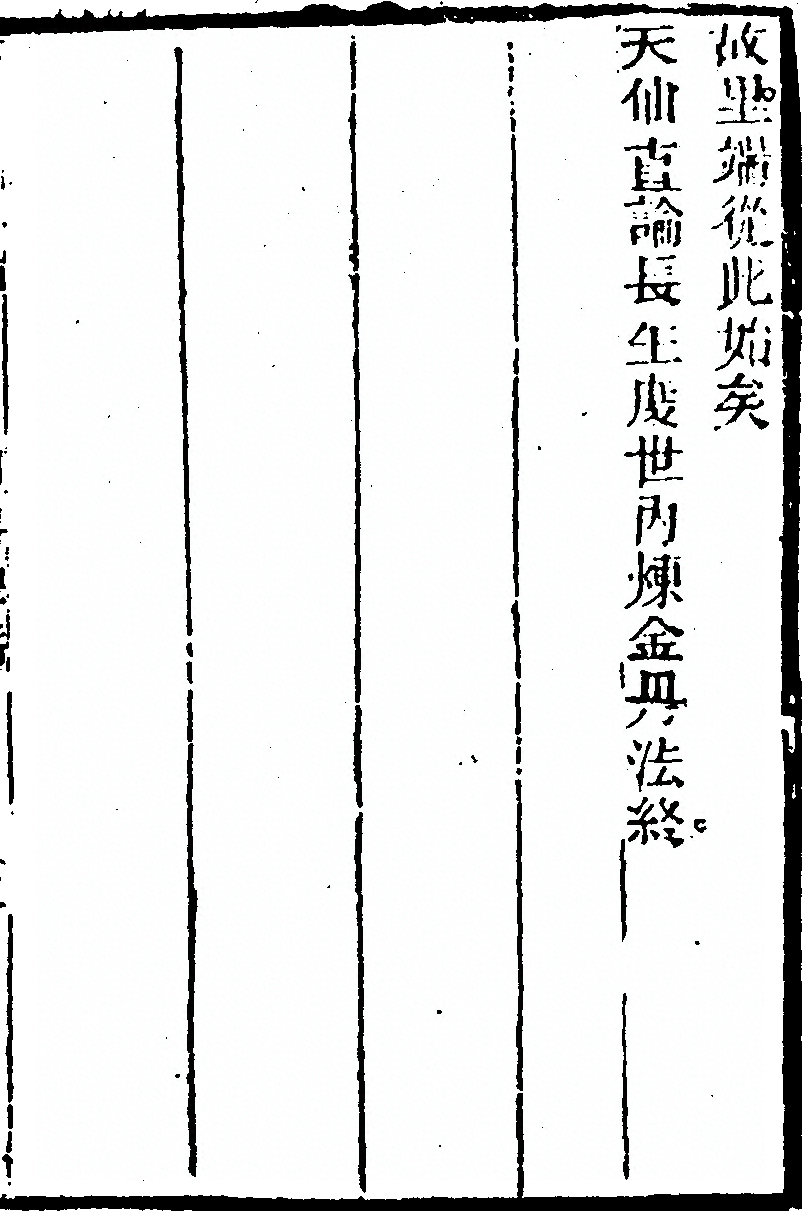 故端從此始矣
天仙直論長生度世內煉金丹法終。